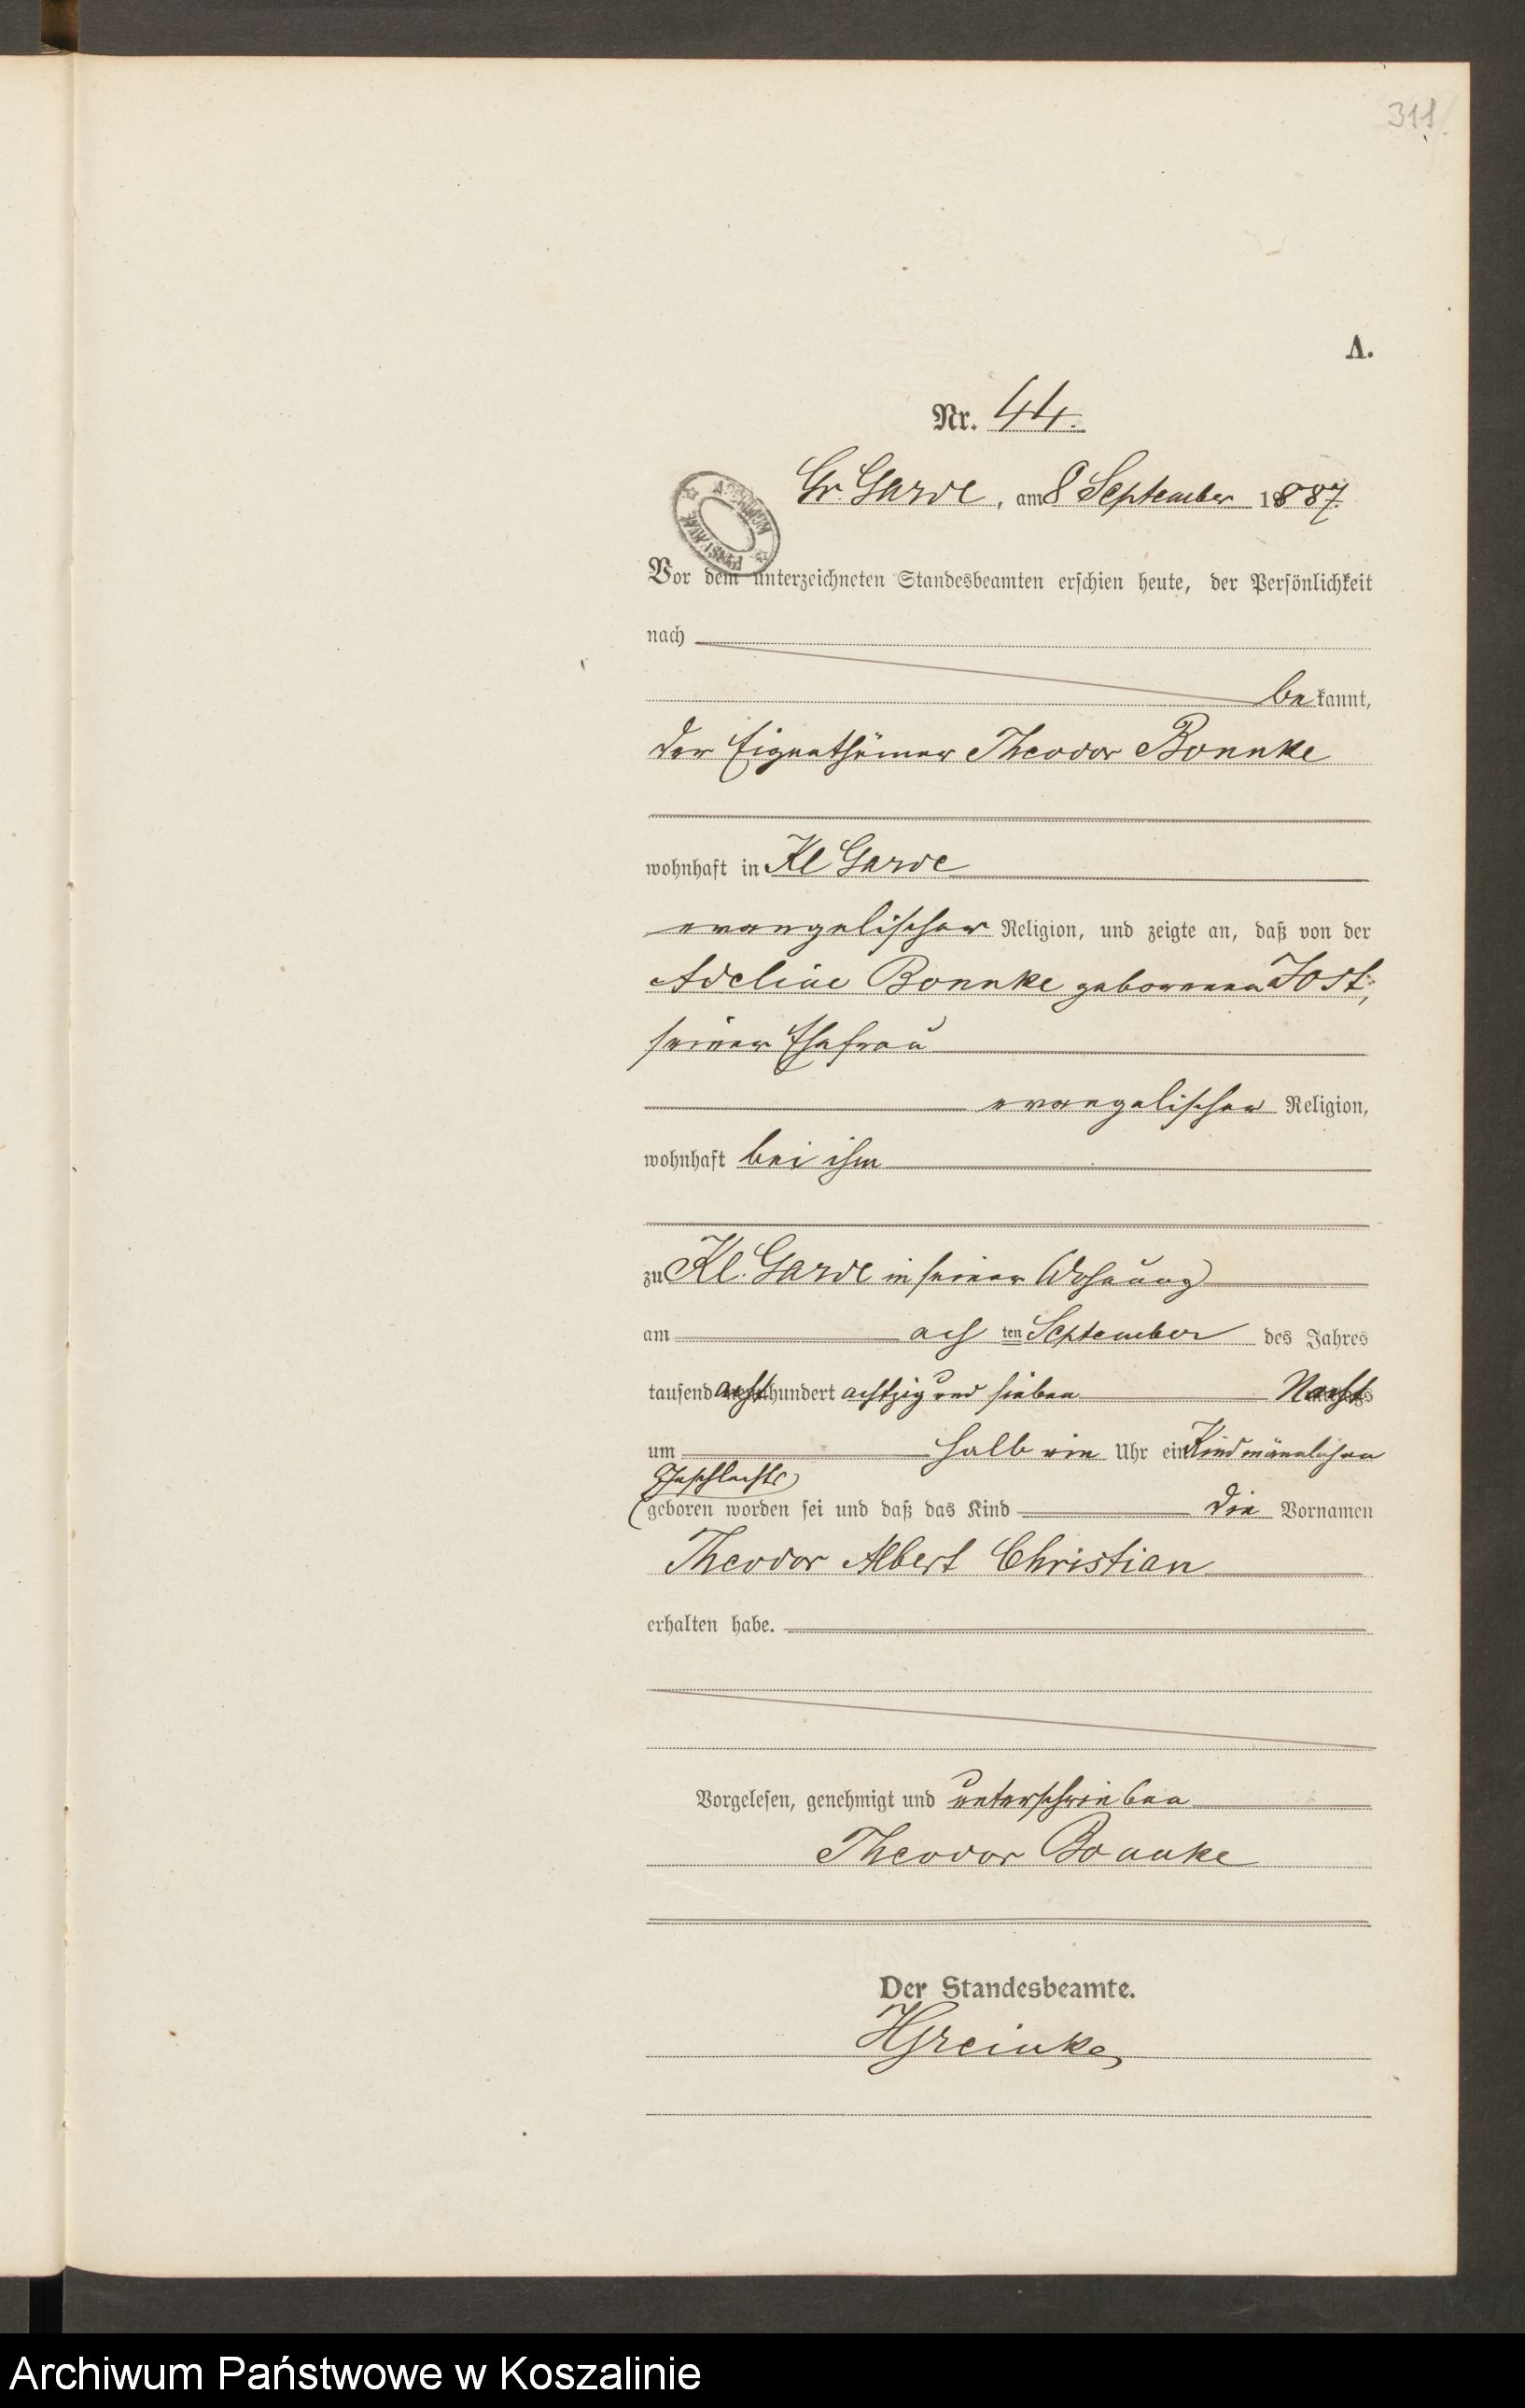 311
A.
Nr. 44.
Gr. Garde, am 8 September 1887.
ARCHIWUM PAŃSTWOWE
Vor dem unterzeichneten Standesbeamten erschien heute, der Persönlichkeit
nach
bekannt,
der Eigenthümer Theodor Bonnke
wohnhaft in Kl Garde
evangelischer Religion, und zeigte an, daß von der
Adeline Bonnke geborenen Jost,
seiner Ehefrau
evangelischer Religion,
wohnhaft bei ihm
zu Kl. Garde in seiner Wohnung
am ach ten September des Jahres
tausend acht hundert achtzig und sieben Nachts
um halb ein Uhr ein Kind männlichen
Geschlechts
geboren worden sei und daß das Kind die Vornamen
Theodor Albert Christian
erhalten habe.
Vorgelesen, genehmigt und unterschrieben
Theodor Bonnke
Der Standesbeamte.
Archiwum Państwowe w Koszalinie